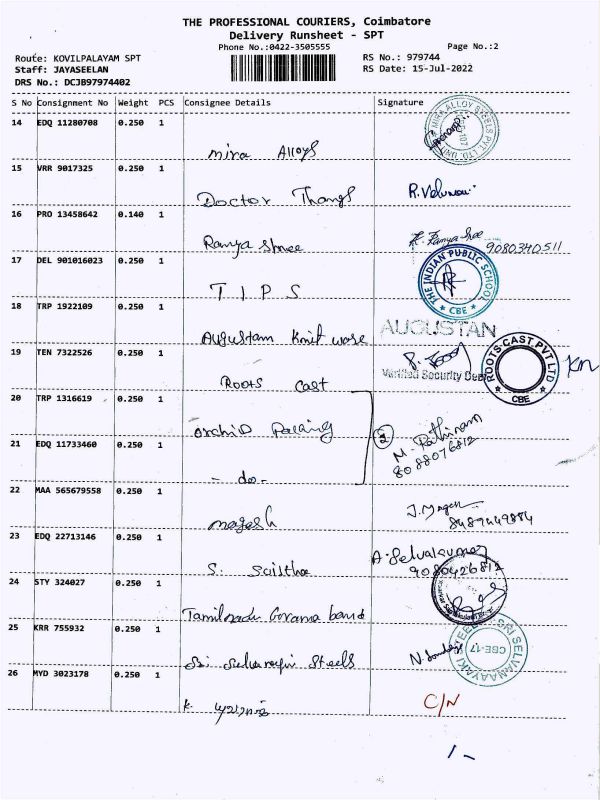 THE PROFESSIONAL COURIERS, Coimbatore
Delivery Runsheet - SPT
Phone No.:0422-3505555
Page No.:2
Route: KOVILPALAYAM SPT
RS No.: 979744
Staff: JAYASEELAN
RS Date: 15-Jul-2022
DRS No.: DCJB97974402
S No Consignment No Weight PCS Consignee Details Signature
14 EDQ 11280708 0.250 1
mira Alloys
MIRA ALLOY STEELS PVT LTD.
15 VRR 9017325 0.250 1
Doctor Thangs
16 PRO 13458642 0.140 1
Ramya shree
R. Ramya Shree
9080340511
17 DEL 901016023 0.250 1
T I P S
THE INDIAN PUBLIC SCHOOL
* CBE *
18 TRP 1922109 0.250 1
Augustam Knit ware
AUGUSTAN
19 TEN 7322526 0.250 1
Roots Cast
Verified Security Dept
ROOTS CAST PVT LTD
* CBE *
20 TRP 1316619 0.250 1
orchid
2
M. Rathinam
8088076812
21 EDQ 11733460 0.250 1
- do -
22 MAA 565679558 0.250 1
magesh
8489449884
23 EDQ 22713146 0.250 1
S.
A. Selvakumar
9080426812
24 STY 324027 0.250 1
Tamilnadu Grama bank
25 KRR 755932 0.250 1
Sri Steels
SRI SELVANAAYAKI STEEL
CBE-17
26 MYD 3023178 0.250 1
K.
C/N